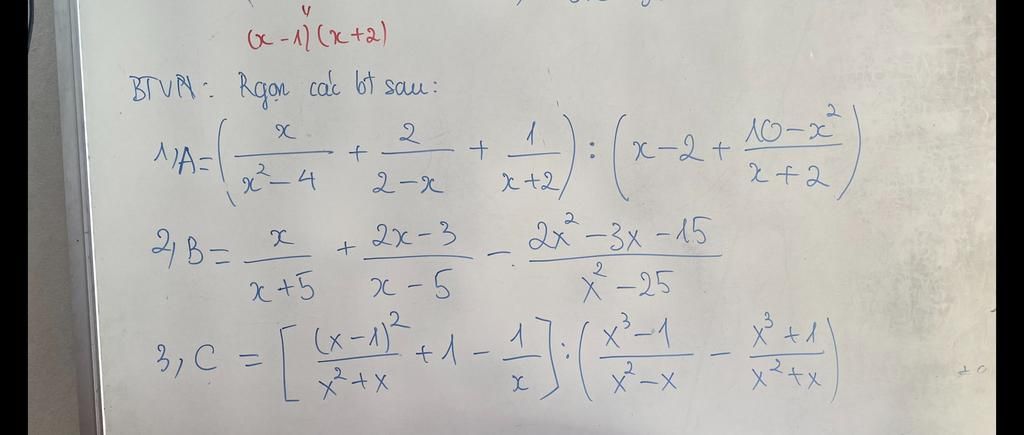 (x-1)(x+2)
BTVN: Rgọn các bt sau:
1, A = ( x/(x² - 4) + 2/(2 - x) + 1/(x + 2) ) : ( x - 2 + (10 - x²)/(x + 2) )
2, B = x/(x + 5) + (2x - 3)/(x - 5) - (2x² - 3x - 15)/(x² - 25)
3, C = [ (x - 1)²/(x² + x) + 1 - 1/x ] : ( (x³ - 1)/(x² - x) - (x³ + 1)/(x² + x) )